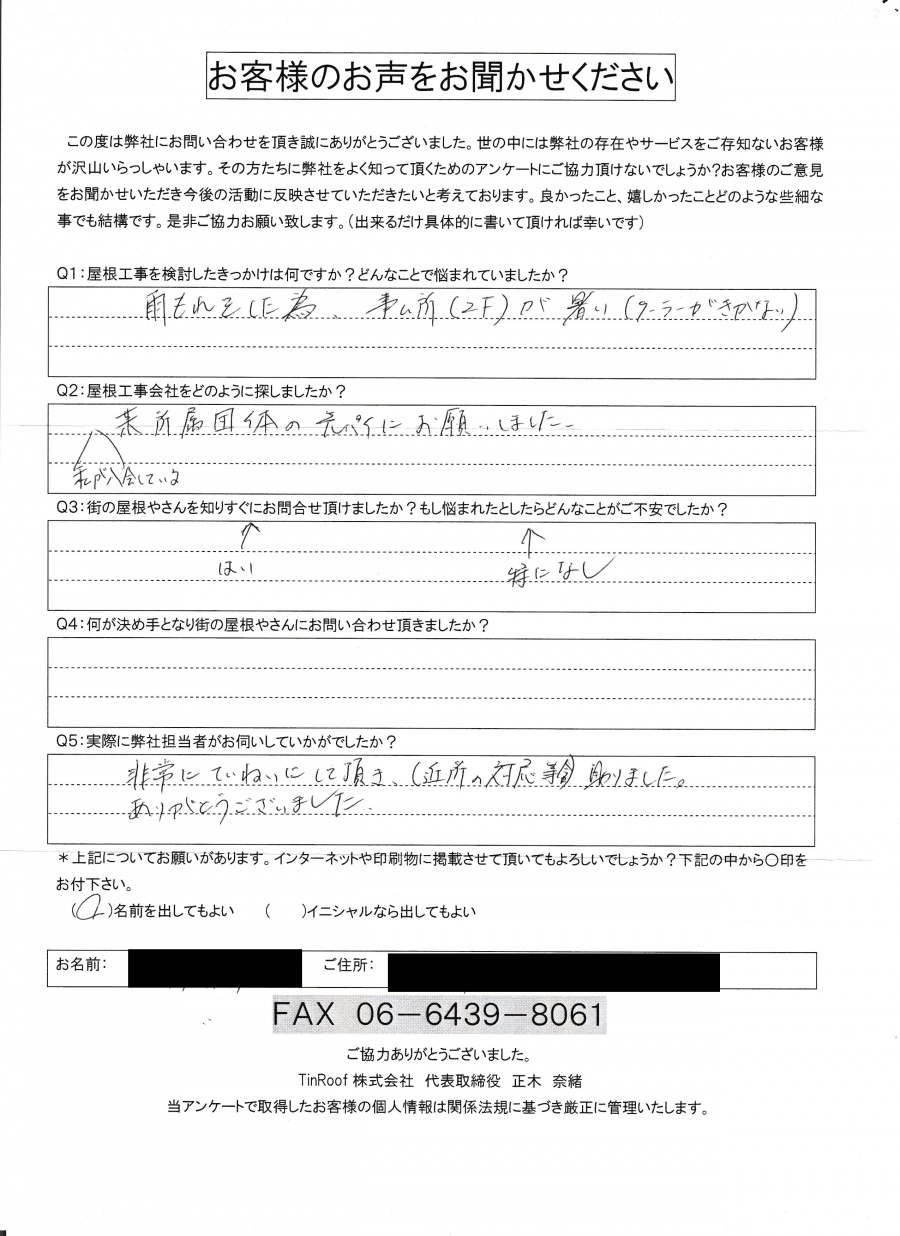 お客様のお声をお聞かせください
この度は弊社にお問い合わせを頂き誠にありがとうございました。世の中には弊社の存在やサービスをご存知ないお客様
が沢山いらっしゃいます。その方たちに弊社をよく知って頂くためのアンケートにご協力頂けないでしょうか?お客様のご意見
をお聞かせいただき今後の活動に反映させていただきたいと考えております。良かったこと、嬉しかったことどのような些細な
事でも結構です。是非ご協力お願い致します。(出来るだけ具体的に書いて頂ければ幸いです)
Q1:屋根工事を検討したきっかけは何ですか?どんなことで悩まれていましたか?
雨もれをした為、事ム所(2F)が暑い(クーラーがきかない)
Q2:屋根工事会社をどのように探しましたか?
某所属団体の先パイにお願いしました
私が入会している
Q3:街の屋根やさんを知りすぐにお問合せ頂けましたか?もし悩まれたとしたらどんなことがご不安でしたか?
はい 特になし
Q4:何が決め手となり街の屋根やさんにお問い合わせ頂きましたか?
Q5:実際に弊社担当者がお伺いしていかがでしたか?
非常にていねいにして頂き、(近所の対応等)助りました。
ありがとうございました。
*上記についてお願いがあります。インターネットや印刷物に掲載させて頂いてもよろしいでしょうか?下記の中から〇印を
お付下さい。
(〇)名前を出してもよい ( )イニシャルなら出してもよい
お名前: ご住所:
FAX 06-6439-8061
ご協力ありがとうございました。
TinRoof 株式会社 代表取締役 正木 奈緒
当アンケートで取得したお客様の個人情報は関係法規に基づき厳正に管理いたします。